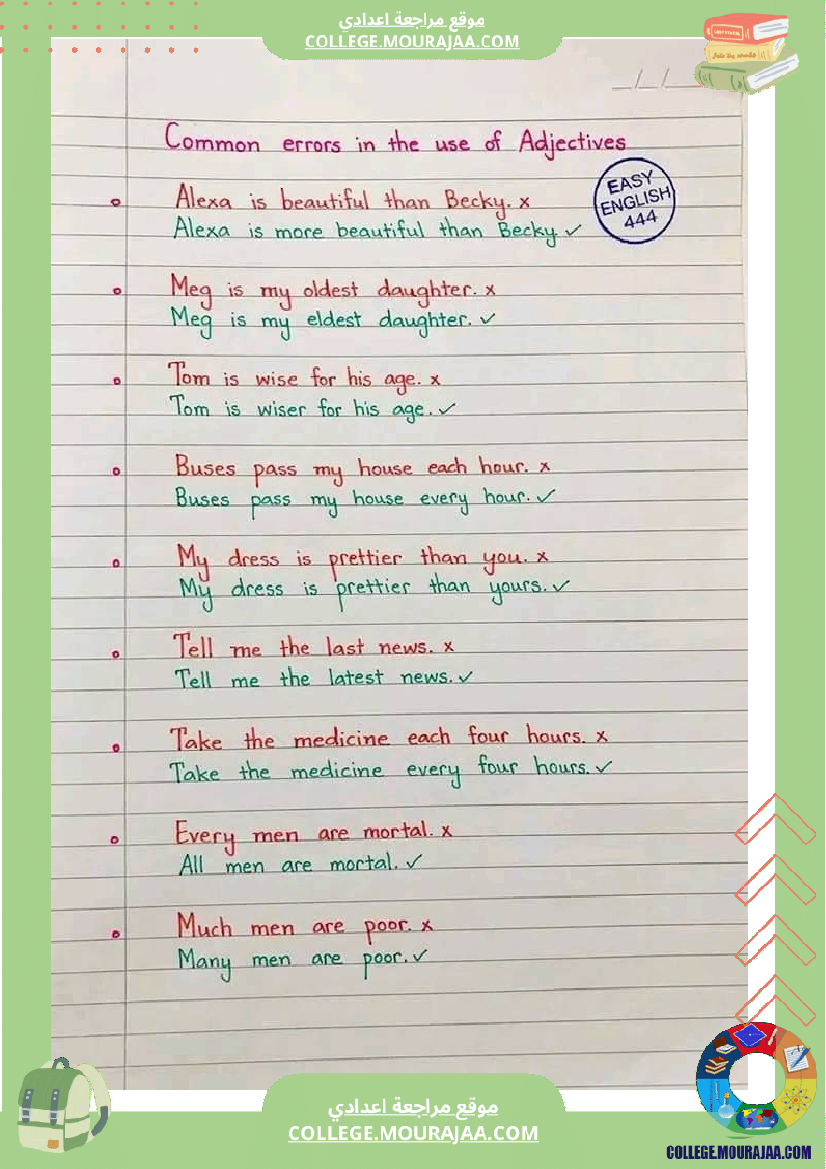 موقع مراجعة اعدادي
COLLEGE.MOURAJAA.COM
Common errors in the use of Adjectives
EASY
ENGLISH
444
Alexa is beautiful than Becky. x
Alexa is more beautiful than Becky. ✓
Meg is my oldest daughter. x
Meg is my eldest daughter. ✓
Tom is wise for his age. x
Tom is wiser for his age. ✓
Buses pass my house each hour. x
Buses pass my house every hour. ✓
My dress is prettier than you. x
My dress is prettier than yours. ✓
Tell me the last news. x
Tell me the latest news. ✓
Take the medicine each four hours. x
Take the medicine every four hours. ✓
Every men are mortal. x
All men are mortal. ✓
Much men are poor. x
Many men are poor. ✓
موقع مراجعة اعدادي
COLLEGE.MOURAJAA.COM
COLLEGE.MOURAJAA.COM